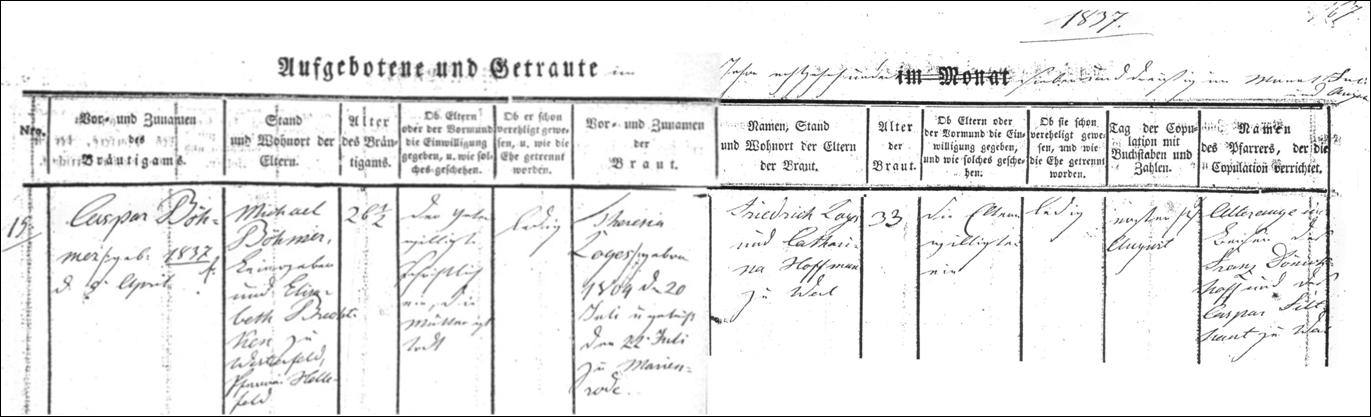 1837.
67.
Aufgebotene und Getraute im Jahr im Monat
Nro.
Vor- und Zunamen
des
Bräutigams.
Stand
und Wohnort der
Eltern.
Alter
des Bräu-
tigams.
Ob Eltern
oder der Vormund
die Einwilligung
gegeben, u. wie sol-
ches geschehen.
Ob er schon
verehligt gewe-
sen, u. wie die
Ehe getrennt
worden.
Vor- und Zunamen
der
Braut.
Namen, Stand
und Wohnort der Eltern
der Braut.
Alter
der
Braut.
Ob Eltern oder
der Vormund die Ein-
willigung gegeben,
und wie solches gesche-
hen.
Ob sie schon
verehligt gewe-
sen, und wie
die Ehe getrennt
worden.
Tag der Copu-
lation mit
Buchstaben und
Zahlen.
Namen
des Pfarrers, der die
Copulation verrichtet.
15.
Caspar Böh-
mer geb. 1837
d. April
Michael
Böhmer,
und Elisa-
beth
zu
Westenfeld,
Pfarrei Helle-
feld
26 1/2
Der Vater
willigte
schriftlich
ein, die
Mutter ist
todt
ledig
Theresia
Loges geboren
1804 d 20
Juli u getauft
den 22 Juli
zu Marien-
rode.
Friedrich Loges
und Cathari-
na Hoffman
zu Wal
33
die Eltern
willigten
ein
ledig
ersten
August
Franz
hoff und des
Caspar
zu Wal